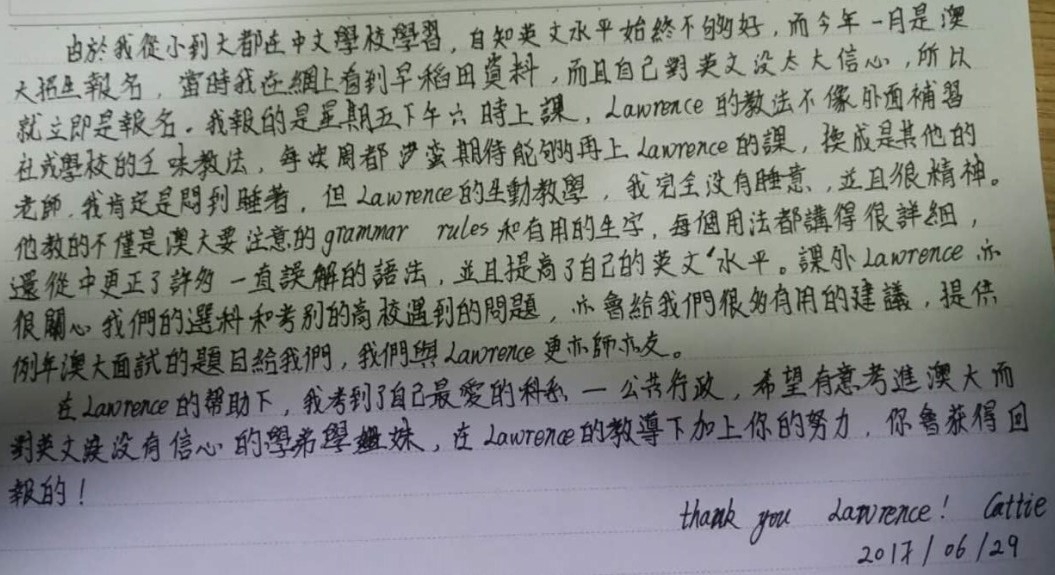 由於我從小到大都在中文學校學習，自知英文水平始終不夠好，而今年一月是澳
大招生報名，當時我在網上看到早稻田資料，而且自己對英文没太大信心，所以
就立即是報名。我報的是星期五下午六時上課，Lawrence 的教法不像外面補習
社或學校的乏味教法，每次周都 期待能夠再上Lawrence的課，換成是其他的
老師，我肯定是悶到睡著，但Lawrence的生動教學，我完全没有睡意，並且很精神。
他教的不僅是澳大要注意的grammar rules和有用的生字，每個用法都講得很詳細，
還從中更正了許多一直誤解的語法，並且提高了自己的英文水平。課外Lawrence亦
很關心我們的選科和考別的高校遇到的問題，亦會給我們很多有用的建議，提供
例年澳大面試的題目給我們，我們與Lawrence更亦師亦友。
在Lawrence的幫助下，我考到了自己最愛的科系一公共行政，希望有意考進澳大而
對英文没有信心的學弟學妹，在Lawrence的教導下加上你的努力，你會获得回
報的！
thank you Lawrence! Cattie
2017/06/29